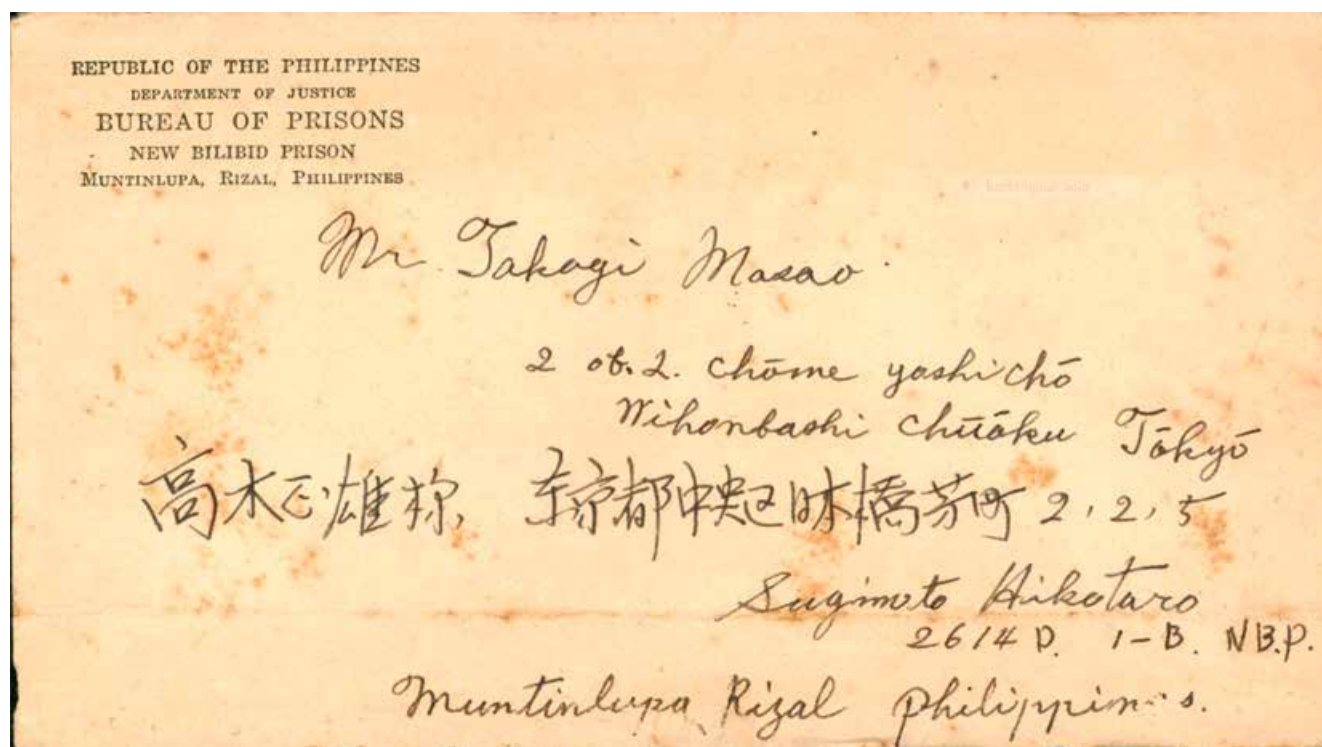 REPUBLIC OF THE PHILIPPINES
DEPARTMENT OF JUSTICE
BUREAU OF PRISONS
NEW BILIBID PRISON
MUNTINLUPA, RIZAL, PHILIPPINES
Mr. Takagi Masao
2 of. 2. chōme yoshichō
Nihonbashi chūōku Tōkyō
高木正雄様 東京都中央区日本橋芳町 2, 2, 5
Sugimoto Hikotaro
2614 D. 1-B. N.B.P.
Muntinlupa, Rizal philippines.